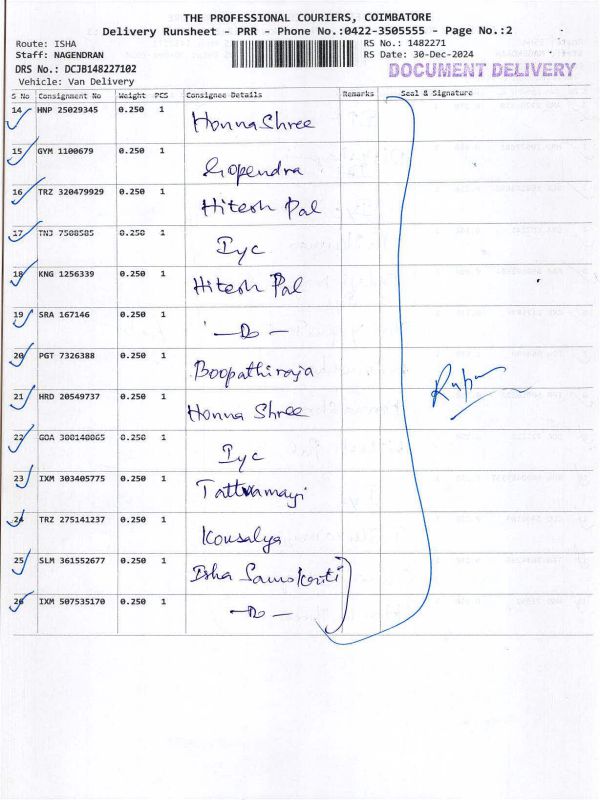 THE PROFESSIONAL COURIERS, COIMBATORE
Delivery Runsheet - PRR - Phone No.:0422-3505555 - Page No.:2
Route: ISHA RS No.: 1482271
Staff: NAGENDRAN RS Date: 30-Dec-2024
DRS No.: DCJB148227102 DOCUMENT DELIVERY
Vehicle: Van Delivery
S No Consignment No Weight PCS Consignee Details Remarks Seal & Signature
14 HNP 25029345 0.250 1 Honna Shree
15 GYM 1100679 0.250 1 Gopendra
16 TRZ 320479929 0.250 1 Hitesh Pal
17 TNJ 7508585 0.250 1 Iyc
18 KNG 1256339 0.250 1 Hitesh Pal
19 SRA 167146 0.250 1 — Do —
20 PGT 7326388 0.250 1 Boopathiraja
21 HRD 20549737 0.250 1 Honna Shree
22 GOA 300140065 0.250 1 Iyc
23 IXM 303405775 0.250 1 Tattvamayi
24 TRZ 275141237 0.250 1 Kousalya
25 SLM 361552677 0.250 1 Isha
26 IXM 507535170 0.250 1 — Do —